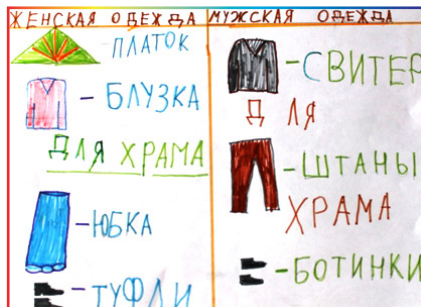 ЖЕНСКАЯ ОДЕЖДА
- ПЛАТОК
- БЛУЗКА
ДЛЯ ХРАМА
- ЮБКА
- ТУФЛИ
МУЖСКАЯ ОДЕЖДА
- СВИТЕР
ДЛЯ
- ШТАНЫ
ХРАМА
- БОТИНКИ